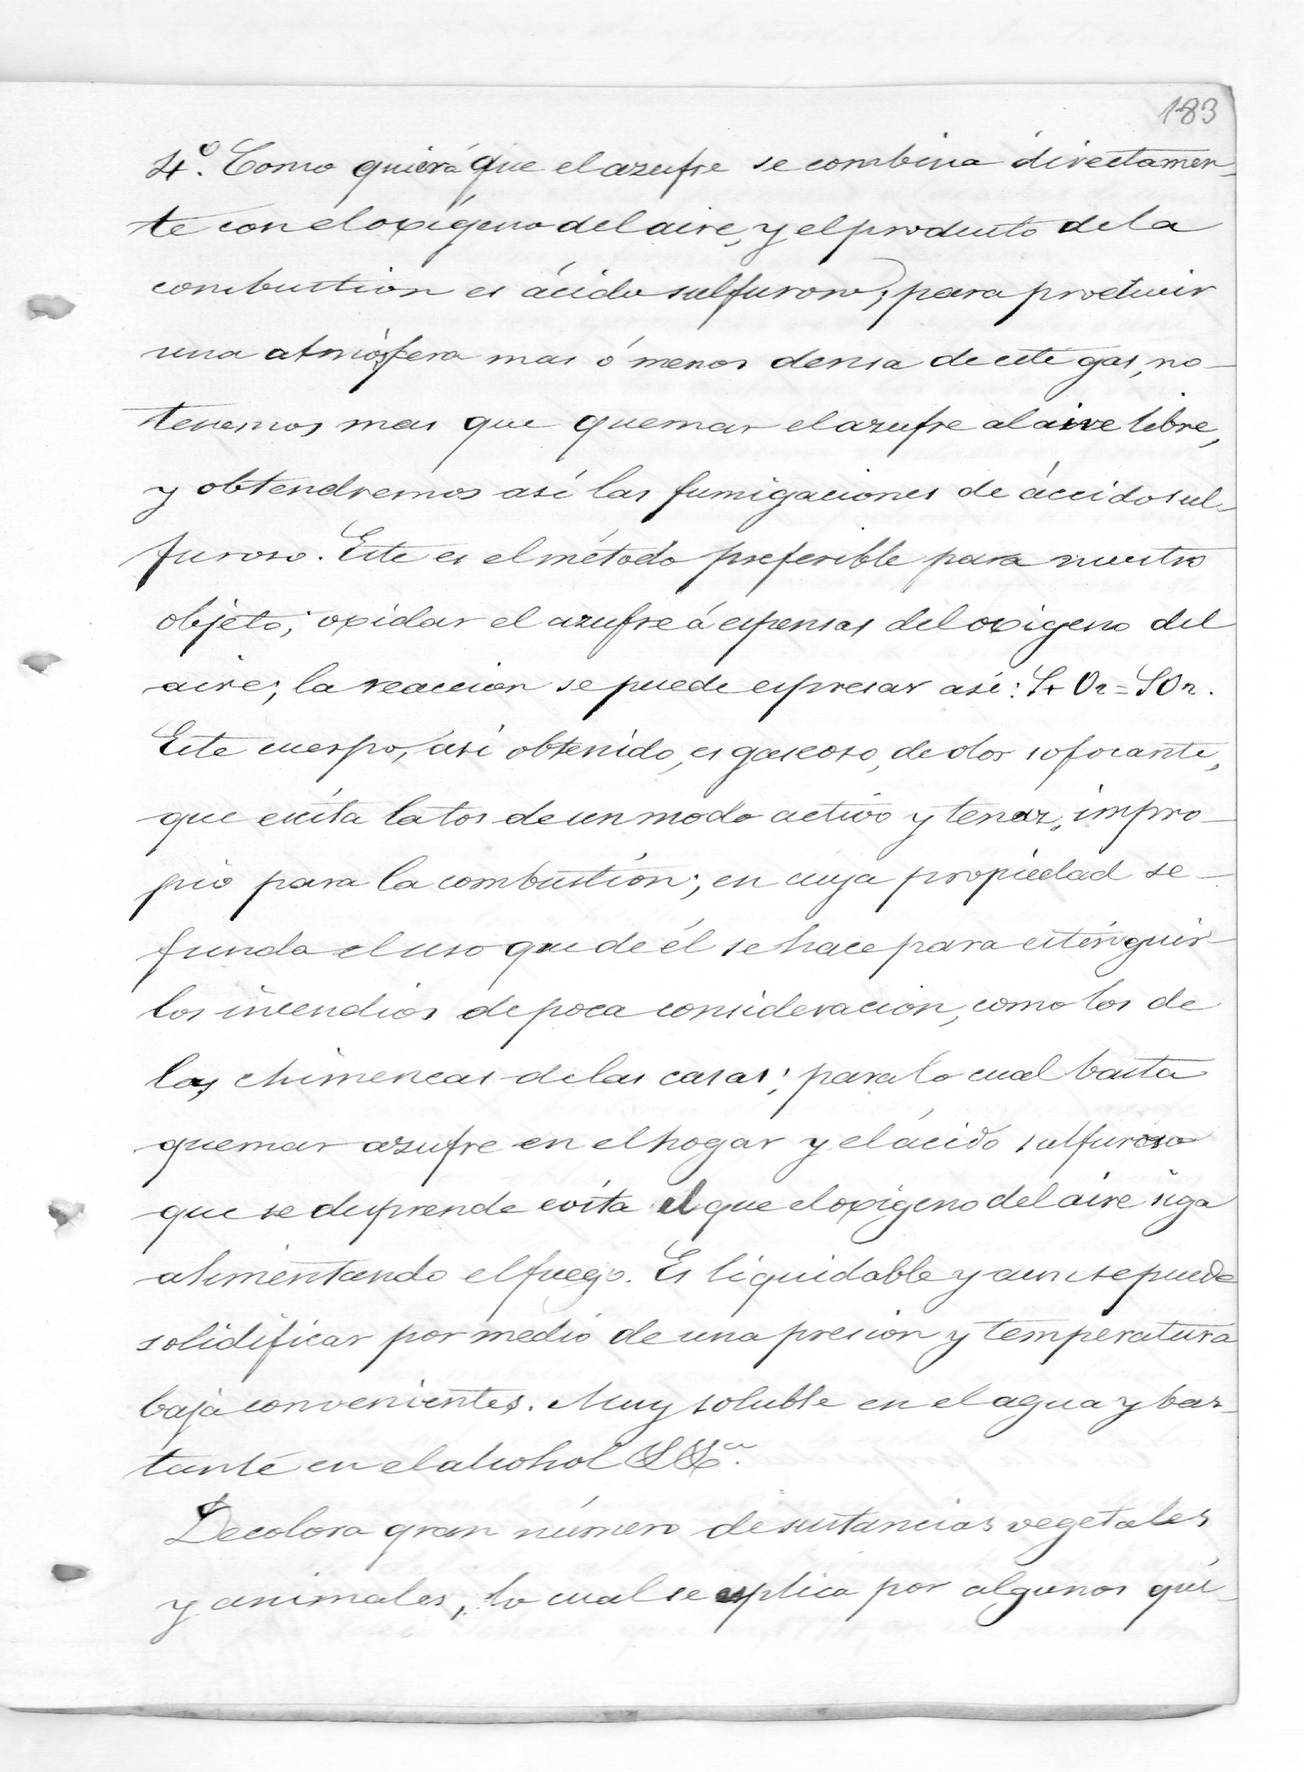 183
4º. Como quiera que el azufre se combina directamen-
te con el oxígeno del aire, y el producto de la
combustion es ácido sulfuroso; para producir
una atmósfera mas ó menos densa de este gas, no
tenemos mas que quemar el azufre al aire libre,
y obtendremos asi las fumigaciones de áccido sul-
furoso. Este es el método preferible para nuestro
objeto; oxidar el azufre á espensas del oxigeno del
aire; la reaccion se puede espresar asi: S+O2=SO2.
Este cuerpo, asi obtenido, es gaseoso, de olor sofocante,
que escita la tos de un modo activo y tenaz, impro-
pio para la combustion; en cuya propiedad se
funda el uso que de él se hace para estinguir
los incendios de poca consideracion, como los de
las chimeneas de las casas; para lo cual basta
quemar azufre en el hogar y el ácido sulfuroso
que se desprende evita el que el oxigeno del aire siga
alimentando el fuego. Es liquidable y aun se puede
solidificar por medio de una presion y temperatura
baja convenientes. Muy soluble en el agua y bas-
tante en el alcohol &&ª.
Decolora gran número de sustancias vegetales
y animales, lo cual se esplica por algunos quí-